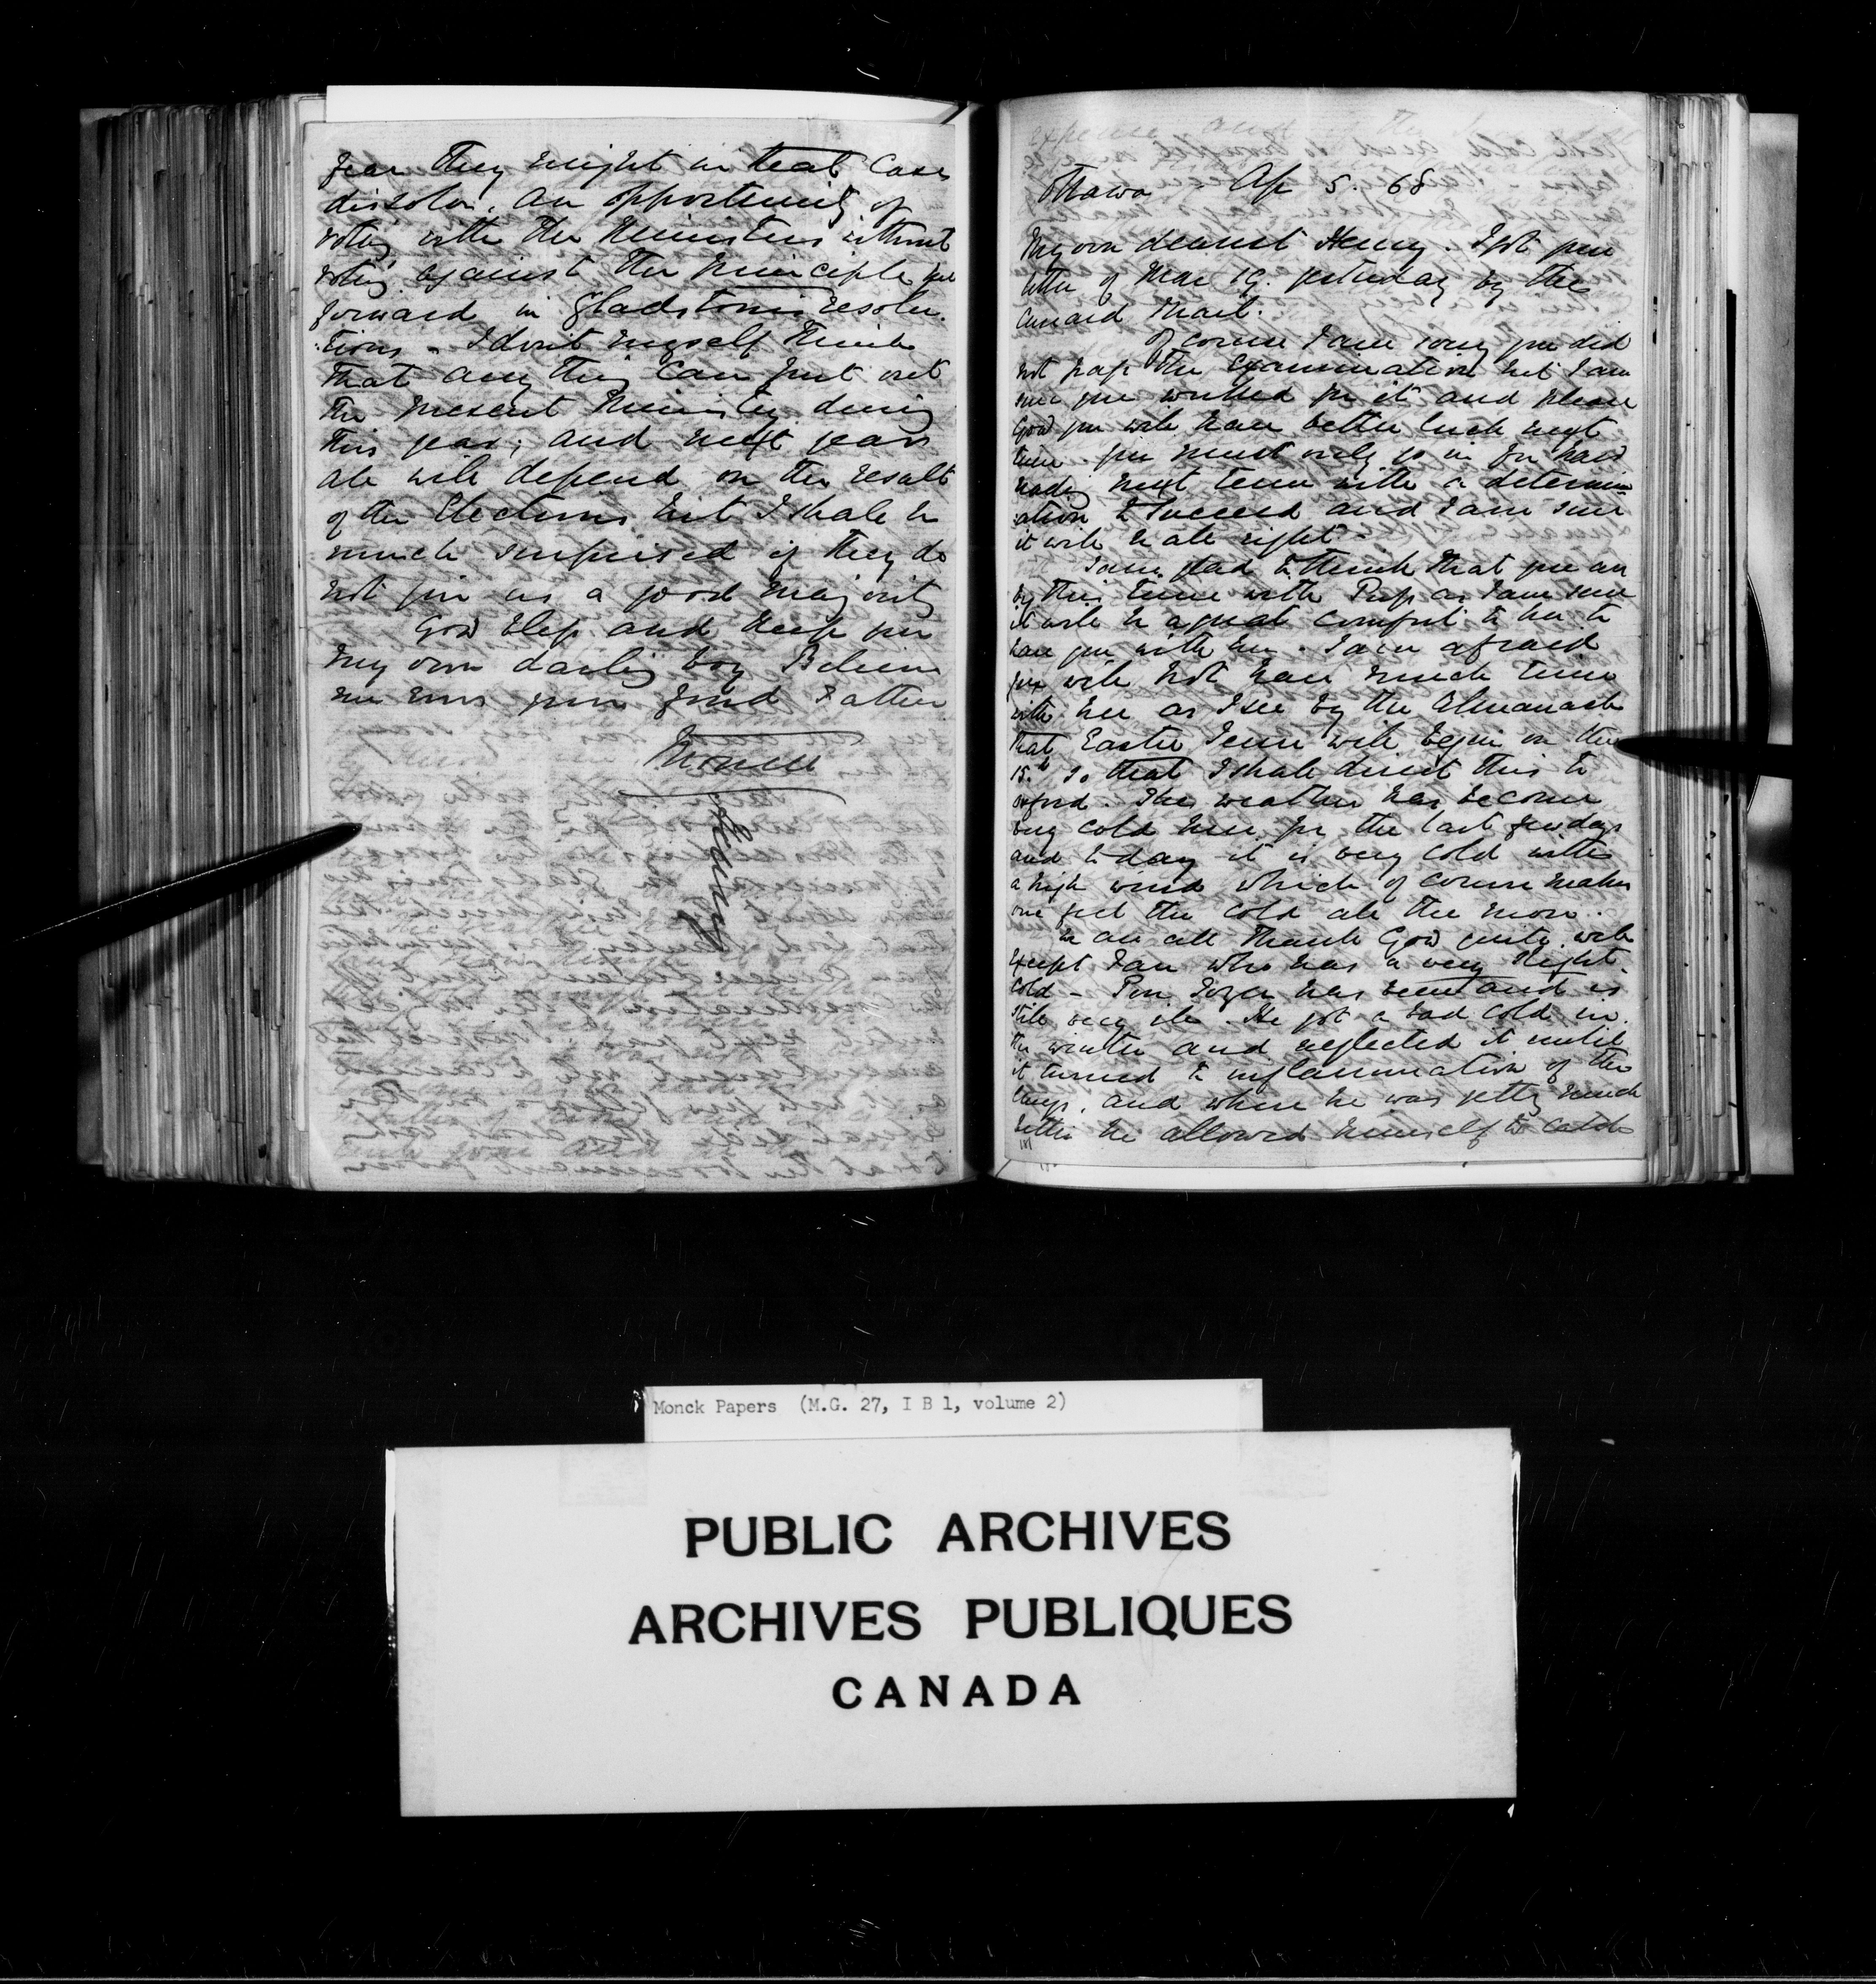 fear they might in that case
dissolve, an opportunity of
voting with the Ministers without
voting against the principle put
forward in Gladstone's resolu-
tions - I don't myself think
that any thing can put out
the present Ministry during
this year; and next year
all will depend on the result
of the Elections but I shall be
much surprised if they do
not give us a good majority
God bless and keep you
my own darling boy Believe
me ever your fond Father
Monck
Henry
Ottawa - Ap 5. 68
My own dearest Henry. I got your
letter of Mar 19. yesterday by the
Cunard Mail.
Of course I am sorry you did
not pass the examination but I am
sure you worked for it and please
God you will have better luck next
time. You must only go in for hard
reading next term with a determin-
ation to succeed and I am sure
it will be all right -
I am glad to think that you are
by this time with Puss as I am sure
it will be a great comfort to her to
have you with her. I am afraid
you will not have much time
with her as I see by the Almanack
that Easter Term will begin on the
15.th so that I shall direct this to
Oxford. The weather has become
very cold here for the last few days
and to day it is very cold with
a high wind which of course makes
one feel the cold all the more.
We are all thank God quite well
except Fan who has a very slight
cold - Poor has been and is
still very ill. He got a bad cold in
the winter and neglected it until
it turned to inflammation of the
lungs. and when he was getting much
better he allowed himself to catch
Monck Papers (M.G. 27, I B 1, volume 2)
PUBLIC ARCHIVES
ARCHIVES PUBLIQUES
CANADA